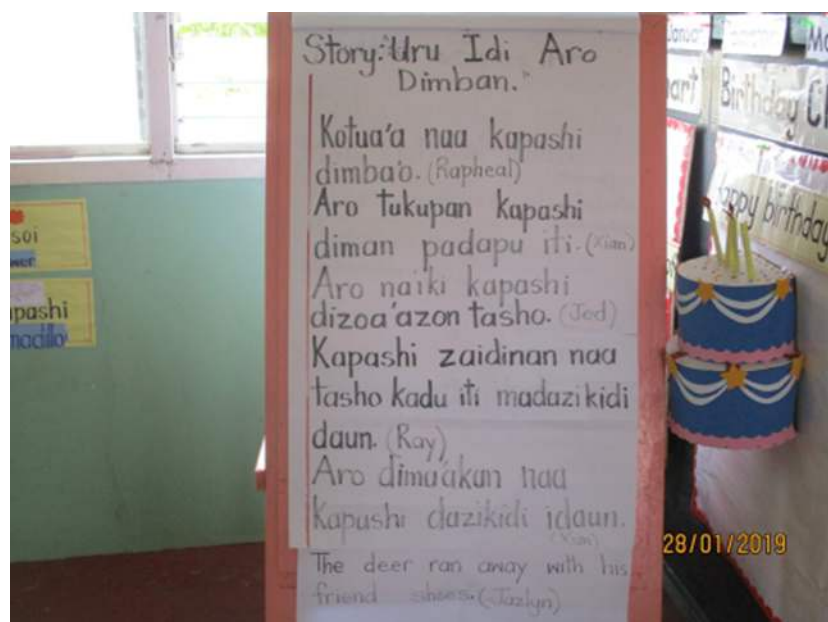 Story: "Uru Idi Aro
Dimban."
Kotua'a naa kapashi
dimba'o. (Rapheal)
Aro tukupan kapashi
diman padapu iti. (Xian)
Aro naiki kapashi
dizoa'azon tasho. (Jed)
Kapashi zaidinan naa
tasho kadu iti madazikidi
daun. (Ray)
Aro dima'akan naa
kapashi dazikidi idaun.
(Xian)
The deer ran away with his
friend shoes. (Jazlyn)
soi
wer
pashi
madillo
Januar
Ma
art
Birthday C
appy birthday
28/01/2019